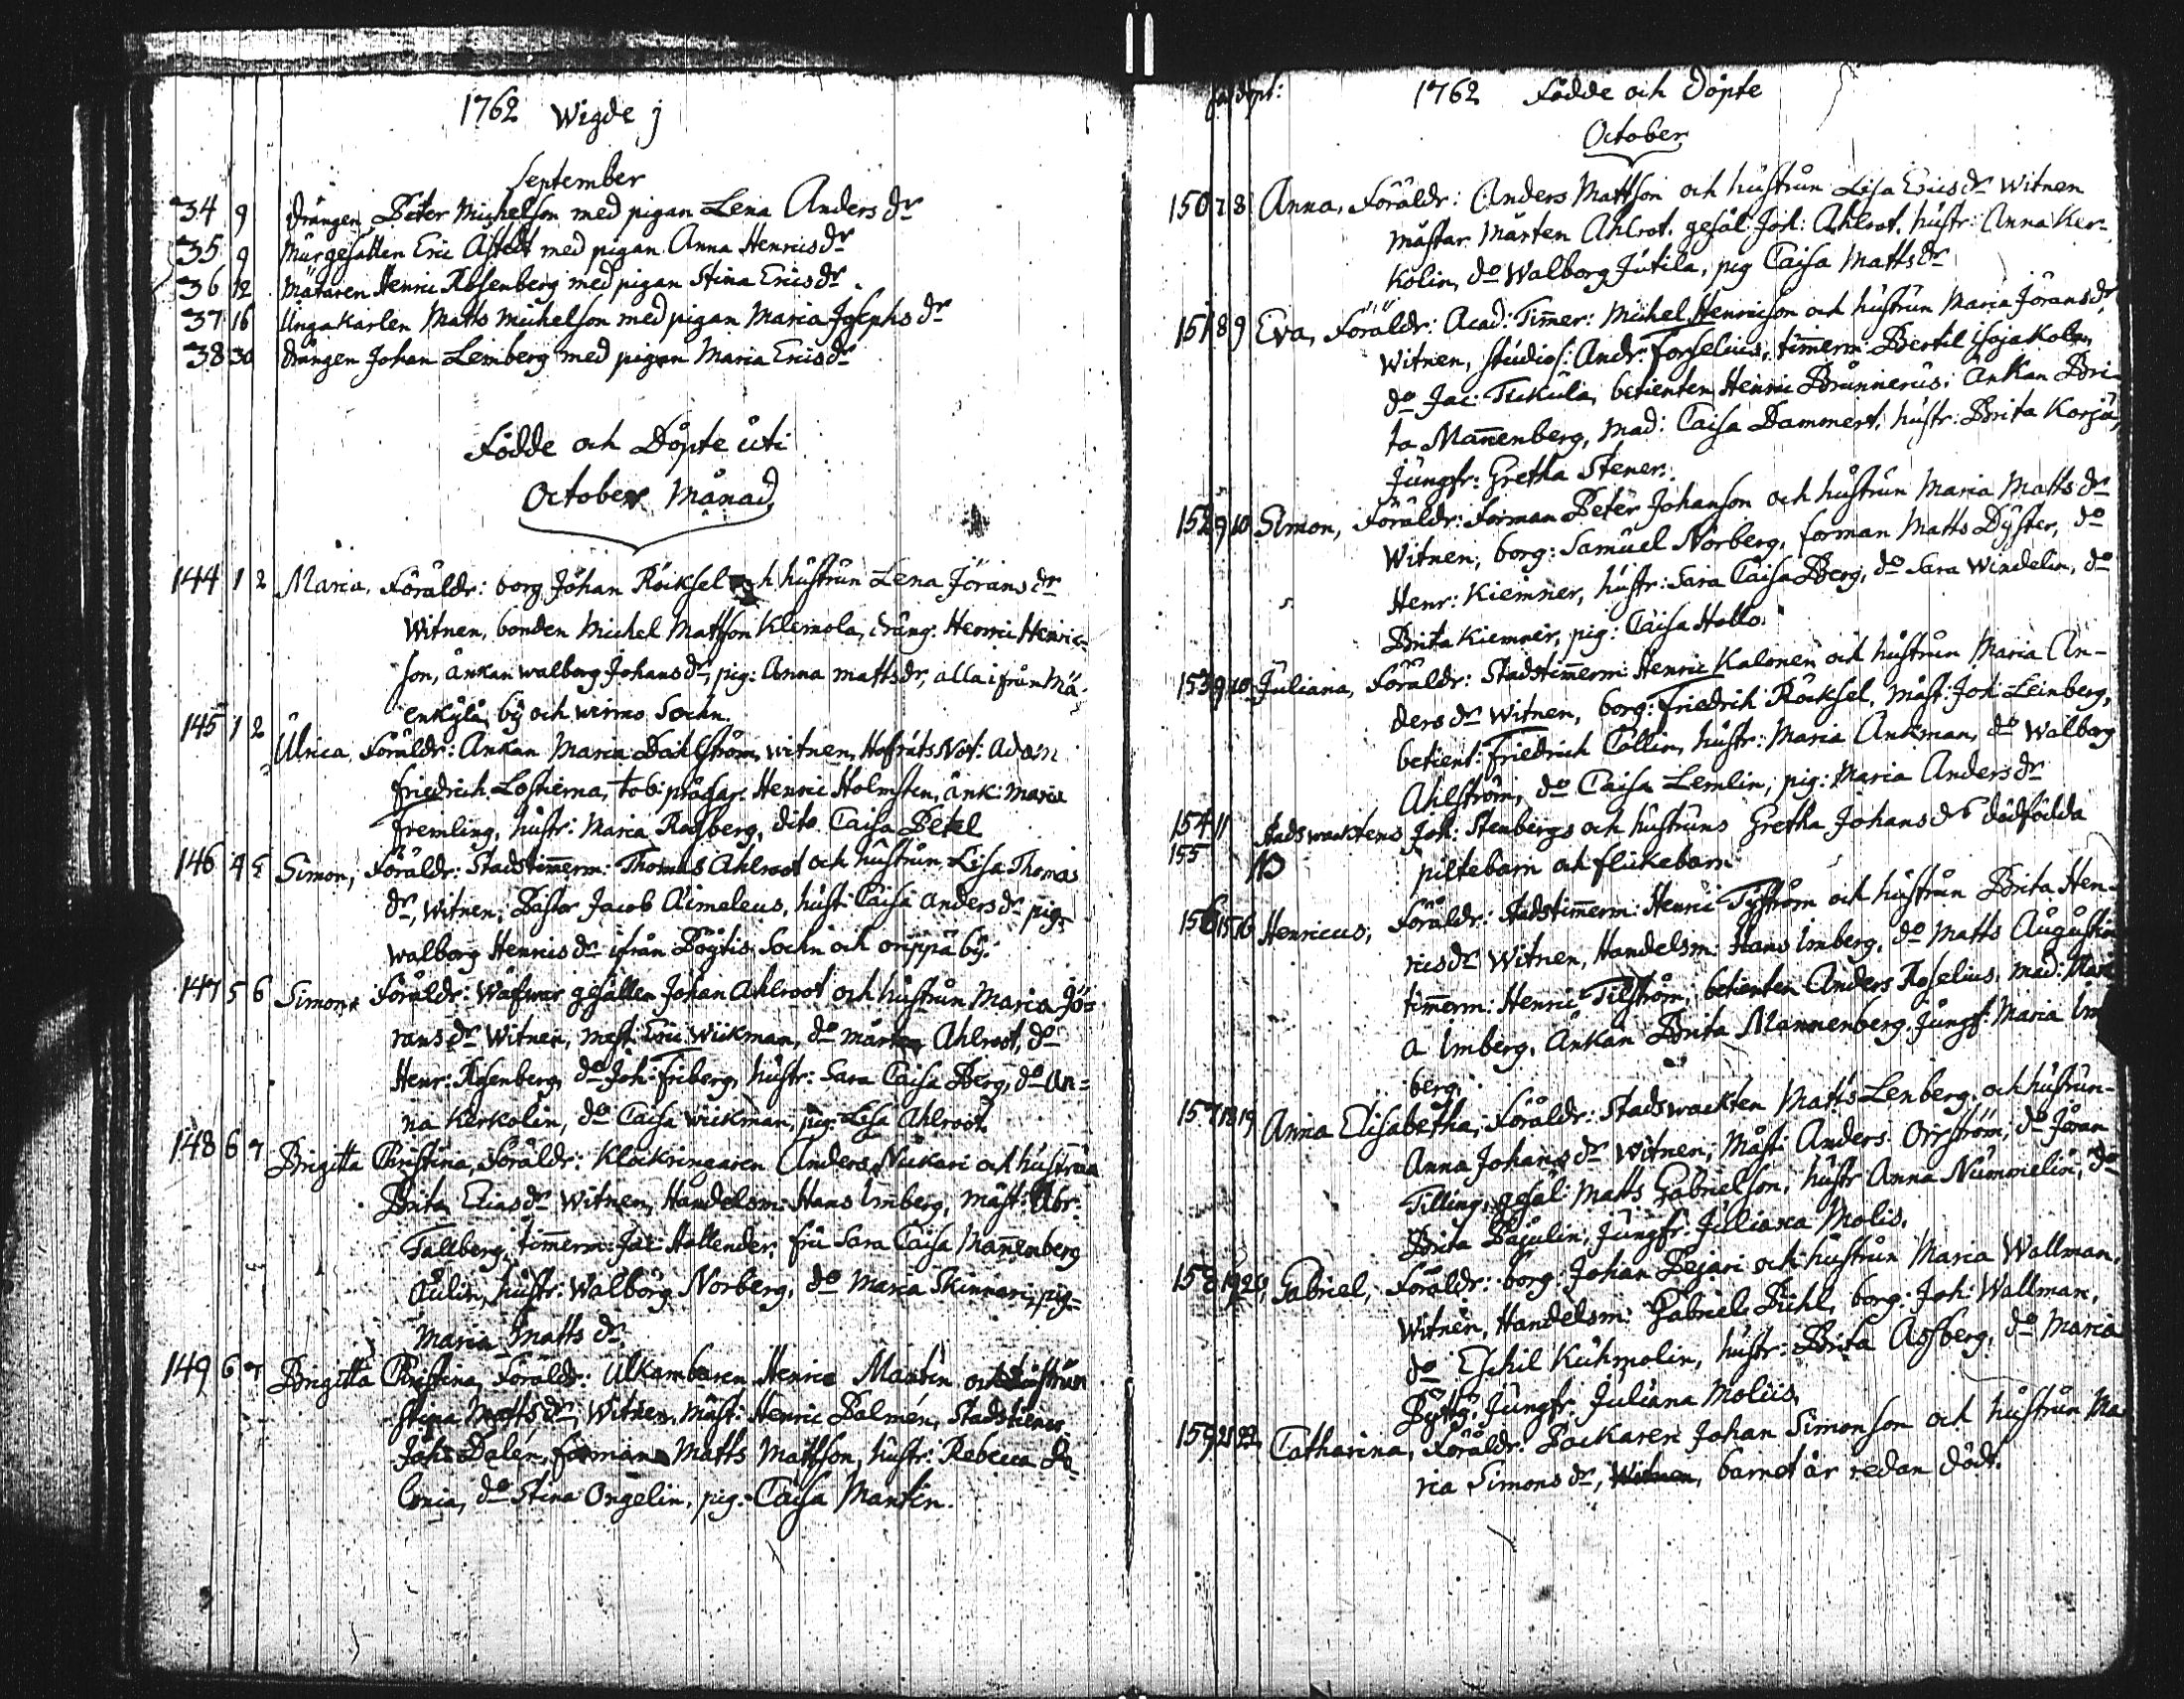 1762 Wigde j
September
34 9 drängen Peter Michelson med pigan Lena Anders dr
35 9 Murgesällen Eric Astedt med pigan Anna Henrics dr
36 12 Mätaren Henric Rosenberg med pigan Stina Erics dr
37 16 Ungakarlen Matts Michelson med pigan Maria Josephs dr
38 30 drängen Johan Leinberg med pigan Maria Erics dr
Födde och Döpte uti
October Månad
144 1 2 Maria, Föräldr: borg Johan Röcksel och hustrun Lena Jörans dr
Witnen, bonden Michel Mattson Klemola, dräng: Henric Henric=
son, änkan walborg Johans dr, pig: Anna matts dr, alla ifrån Mä-
enkylä by och wirmo Sochn.
145 1 2 Ulrica, Föräldr: Änkan Maria Dahlström, witnen, Hofräts Not: Adam
Friedrich Lostierna, Henric Holmsten, änk: Maria
Fremling, hustr: Maria Rosberg, dito Caisa Petel
146 4 5 Simon, Föräldr: Stadstimerm: Thomas Ahlroot och hustrun Lisa Thomas
dr, witnen, Pastor Jacob Aimeleus, hust: Caisa anders dr pig:
walborg Henrics dr ifrån Pöytis Sochn och orippä by.
147 5 6 Simon, Föräldr: Wäfwar gesällen Johan Ahlroot och hustrun Maria Jö=
rans dr Witnen, mest: Eric Wiikman, do mårten Ahlroot, do
Henr: Rosenberg, do Joh: Friberg, hustr: Sara Caisa Berg, do An=
na Kerkolin, do Caisa wiikman, pig: Lisa Ahlroot
148 6 7 Brigitta Christina, Föräldr: Klockringaren Anders Nukari och hustrun
Brita Elias dr Witnen, Handelsm: Hans Imberg, mäst: Abr:
Tallberg, timerm: Jac: Hallender, fru Sara Caisa Manenberg
hustr: Walborg Norberg, do Maria Skinnari, pig=
Maria Matts dr
149 6 7 Brigitta Christina, Föräldr: Ulkambaren Henric Mantin och hustrun
Stina Matts dr, Witnen, mäst: Henric Palmén,
Joh: Dalén, forman Matts Mattson, hustr: Rebecca Po-
lonia, do Stina Ongelin, pig: Caisa Mantin.
föd: döpt: 1762 Födde och Döpte
October
150 7 8 Anna, Föräldr: Anders Mattson och hustrun Lisa Erics dr witnen
mästar Mårten Ahlroot, gesäl: Joh: Ahlroot, hustr: Anna Ker-
kolin, do Walborg Jutila, pig Caisa Matts dr
151 8 9 Eva, Föräldr: Acad: Timer: Michel Henricson och hustrun Maria Jörans dr
Witnen, studios: Andr: Forselius, timerm: Bertil
do Jac: Tuckula, betienten Henric Brunnerus, änkan Bri-
ta Manenberg, Mad: Caisa Dammert, hustr: Brita Korpi,
Jungfr: Gretha Stener.
152 9 10 Simon, Föräldr: Forman Peter Johanson och hustrun Maria Matts dr
Witnen, borg: Samuel Norberg, forman Matts Dyster, do
Henr: Kiemner, hustr: Sara Caisa Berg, do Sara Windelin, do
Brita Kiemner, pig: Caisa Hollo.
153 9 10 Juliana, Föräldr: Stadstimerm: Henric Kalonen och hustrun Maria An-
ders dr Witnen, borg: Friedrich Röcksel, mäst: Joh: Leinberg,
betient: Friedrich Collin, hustr: Maria Ankman, do Walborg
Ahlström, do Caisa Lemlin, pig: Maria Anders dr
154 11 Stadswacktens Joh: Stenbergs och hustruns Gretha Johans dr dödfödda
155 NB piltebarn och flickebarn
156 15 16 Henricus, Föräldr: Stadstimerm: Henric Tyström och hustrun Brita Hen-
rics dr Witnen, Handelsm: Hans Imberg, do Matts Augustin
timerm: Henric Tilström, betienten Anders Roselius, mad: Mari
a Imberg, Änkan Brita Mannenberg, Jungf: Maria Im
berg.
157 18 19 Anna Elisabetha, Föräldr: Stadswackten Matts Lenberg och hustrun-
Anna Johans dr Witnen, Mäst: Anders Orrström, do Jöran
Tilling, gesäl: Matts Gabrielson, hustr Anna Nummelin, do
Brita Pajulin, Jungfr: Juliana Molis.
158 19 20 Gabriel, Föräldr: borg: Johan Pejari och hustrun Maria Wallman,
Witnen, Handelsm: Gabriel Pihl, borg: Joh: Wallman,
do Eschil Kuhmolin, hustr: Brita Asberg, do Maria
Jungfr Juliana Moliis,
159 21 22 Catharina, Föräldr: Packaren Johan Simonson och hustrun Ma
ria Simons dr, Witnen, barnet är redan dödt.